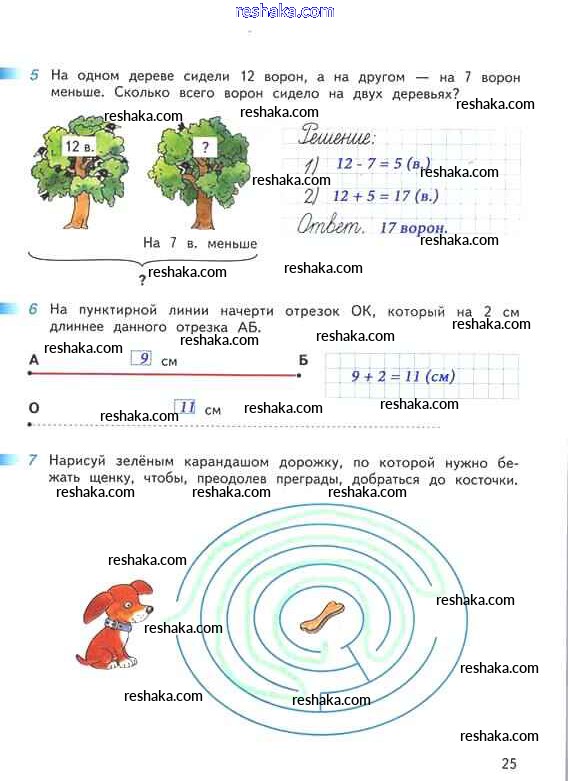 reshaka.com
5 На одном дереве сидели 12 ворон, а на другом — на 7 ворон
меньше. Сколько всего ворон сидело на двух деревьях?
reshaka.com
reshaka.com
reshaka.com
12 в.
?
Решение:
1) 12 - 7 = 5 (в.)
reshaka.com
2) 12 + 5 = 17 (в.)
Ответ. 17 ворон.
На 7 в. меньше
?
reshaka.com
reshaka.com
6 На пунктирной линии начерти отрезок ОК, который на 2 см
длиннее данного отрезка АБ.
reshaka.com
reshaka.com
reshaka.com
А 9 см Б
9 + 2 = 11 (см)
О 11 см
reshaka.com
reshaka.com
reshaka.com
7 Нарисуй зелёным карандашом дорожку, по которой нужно бе-
жать щенку, чтобы, преодолев преграды, добраться до косточки.
reshaka.com
reshaka.com
reshaka.com
reshaka.com
reshaka.com
reshaka.com
reshaka.com
reshaka.com
reshaka.com
reshaka.com
reshaka.com
25